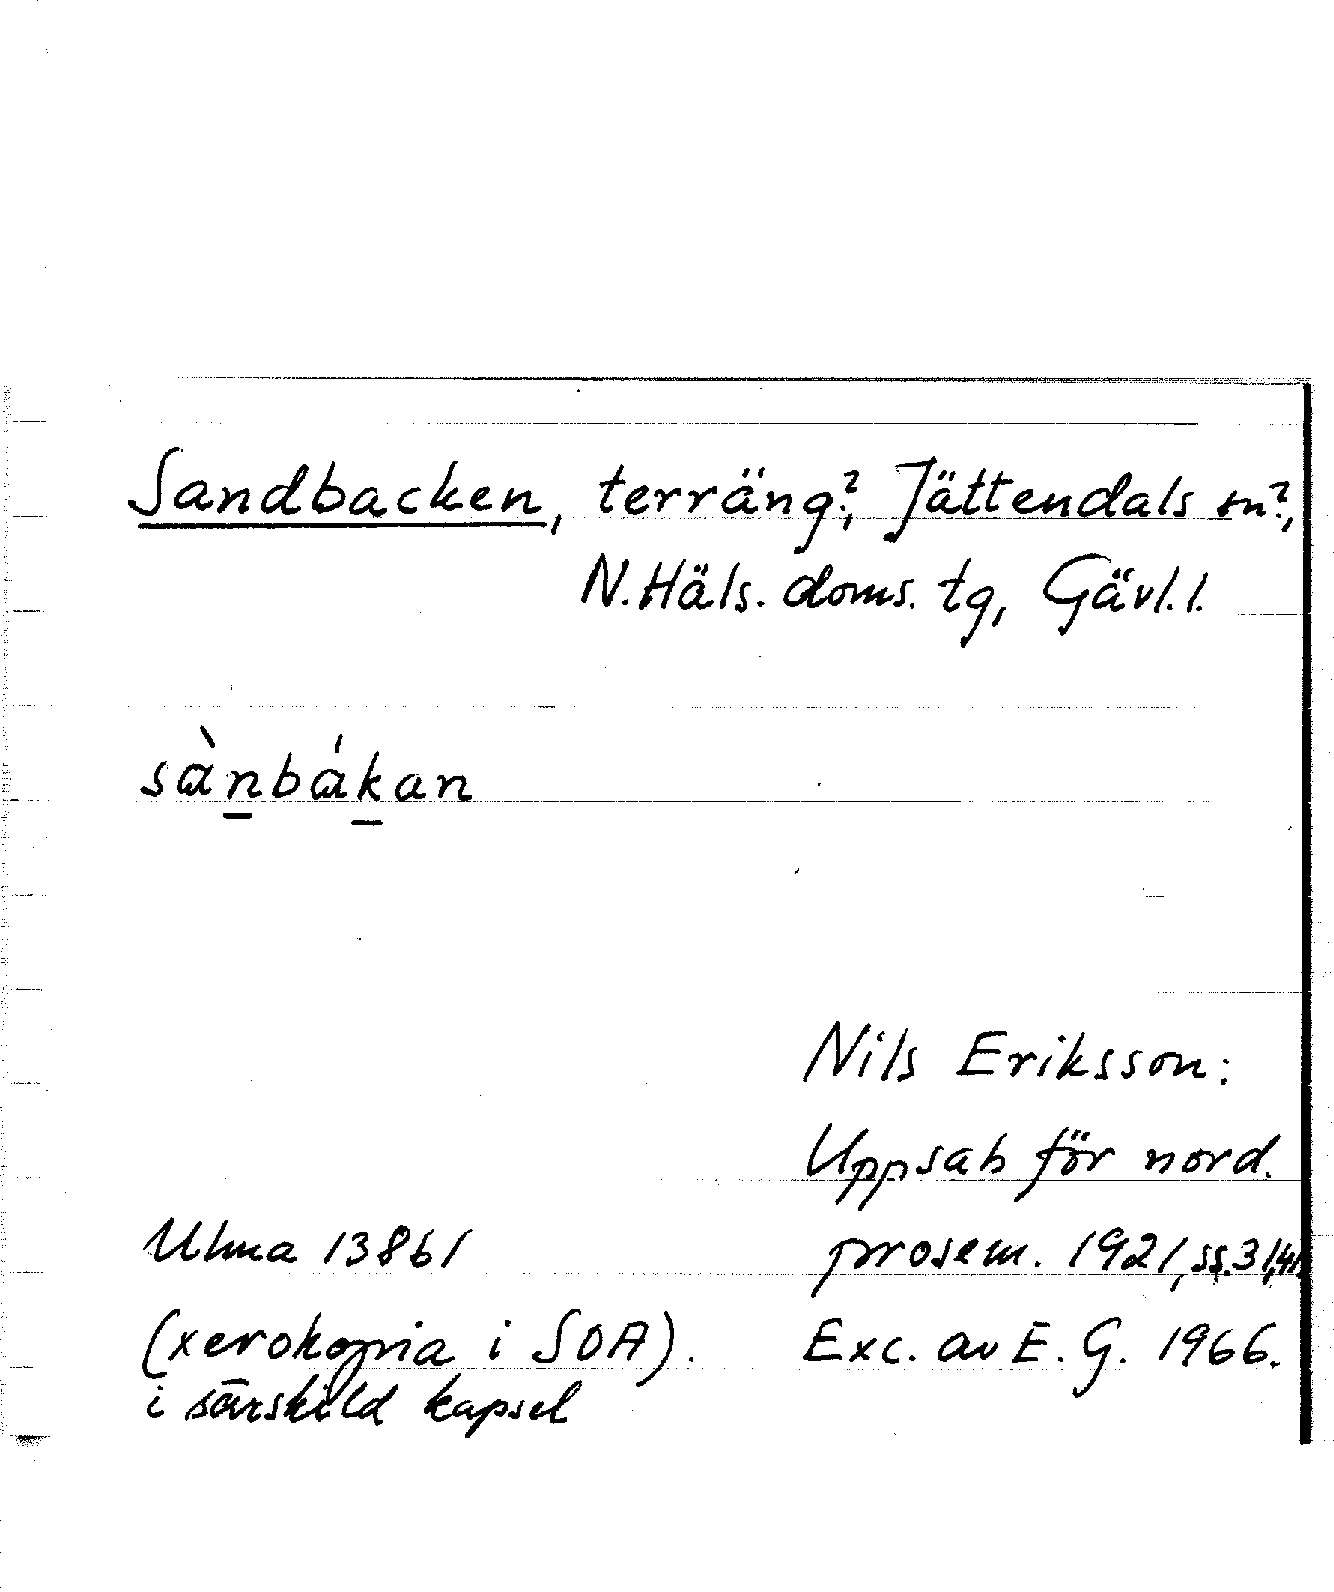 Sandbacken, terräng?, Jättendals sn?,
N. Häls. doms. tg, Gävl. l.
sànbákan
Nils Eriksson:
Uppsats för nord.
Ulma 13861
prosem. 1921, ss. 31, 41.
(xerokopia i SOA).
Exc. av E. G. 1966.
i särskild kapsel